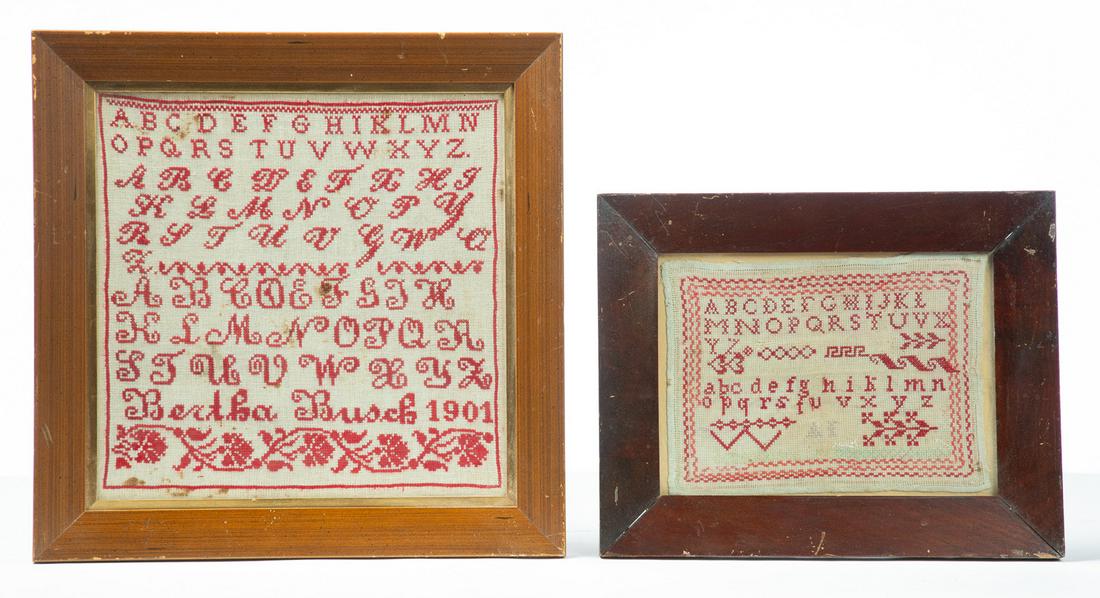 A B C D E F G H I K L M N
O P Q R S T U V W X Y Z.
A B C D E F X H I
K L M N O P Y
R S T U V G W Q
Z
A B C D E F S I H
K L M N O P Q R
S T U V W X Y Z
Bertha Busch 1901
A B C D E F G H I J K L
M N O P Q R S T U V X
Y Z
a b c d e f g h i k l m n
o p q r s f u v x y z